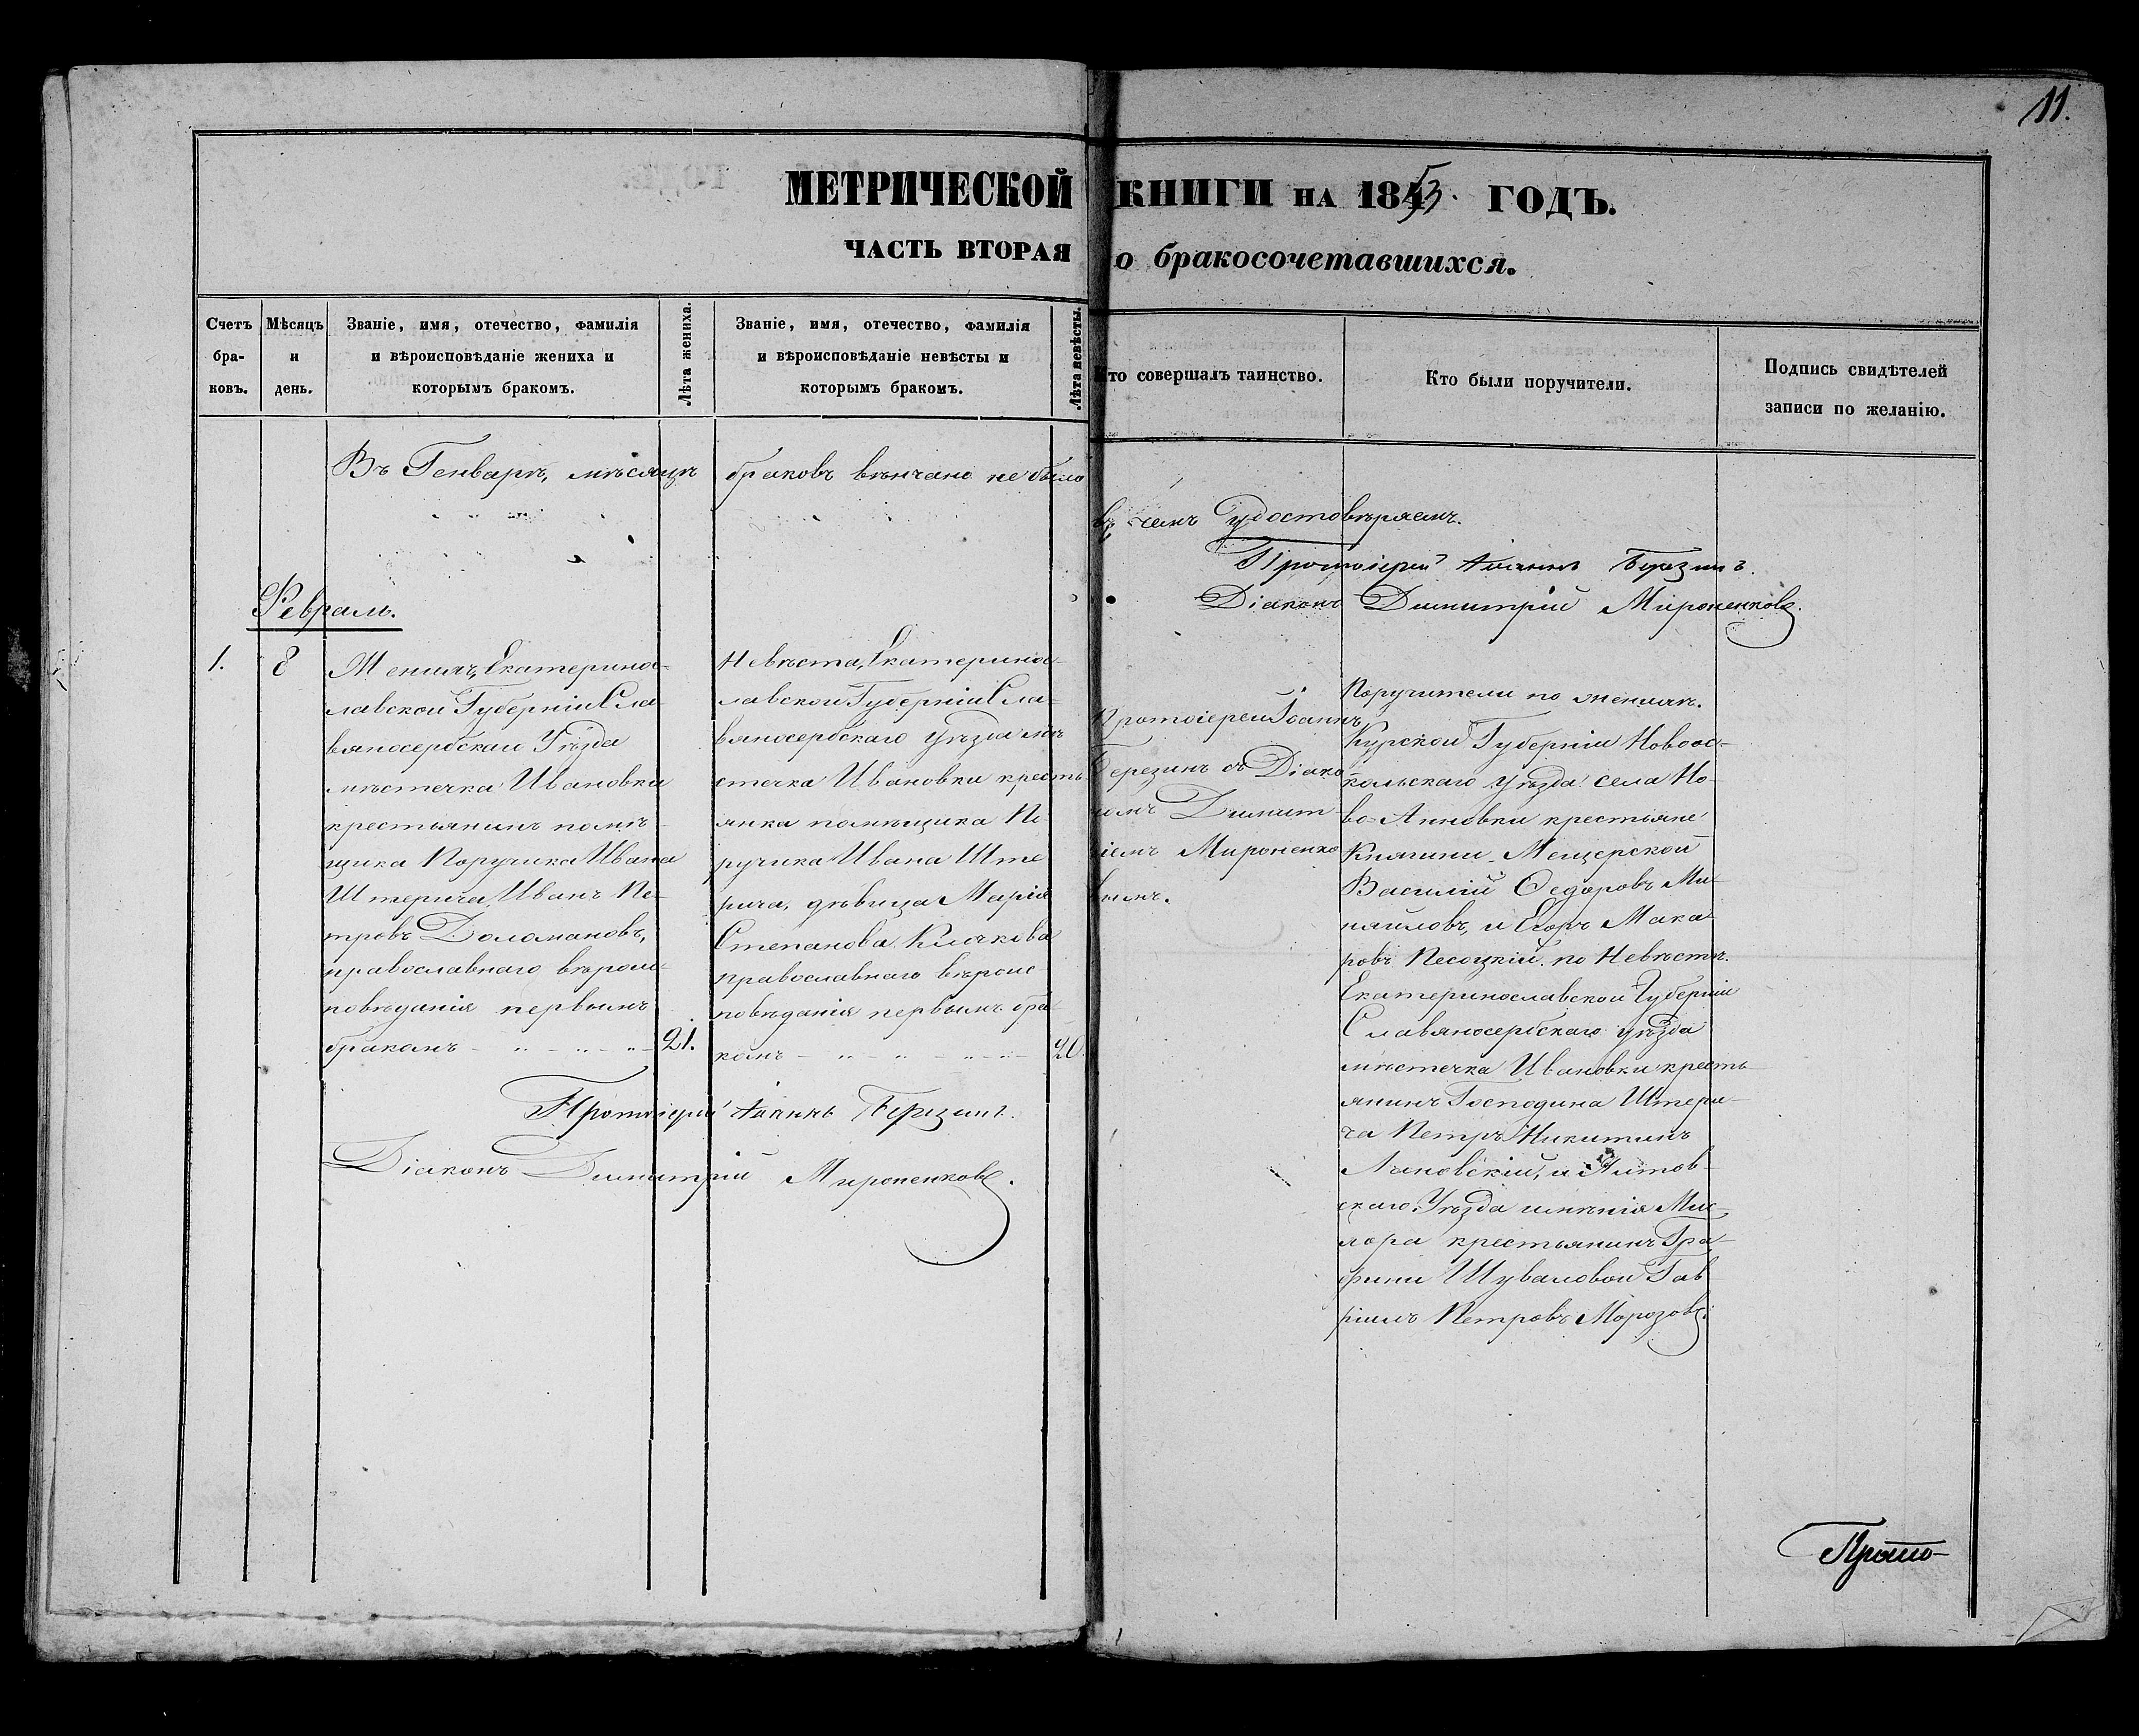 11.
МЕТРИЧЕСКОЙ КНИГИ НА 1853. ГОДЪ.
ЧАСТЬ ВТОРАЯ о бракосочетавшихся.
Счетъ
бра-
ковъ.
Мѣсяцъ
и
день.
Званіе, имя, отечество, фамилія
и вѣроисповѣданіе жениха и
которымъ бракомъ.
Лѣта жениха.
Званіе, имя, отечество, фамилія
и вѣроисповѣданіе невѣсты и
которымъ бракомъ.
Лѣта невѣсты.
Кто совершалъ таинство.
Кто были поручители.
Подпись свидѣтелей
записи по желанію.
Въ Генварѣ, мѣсяцѣ браковъ вѣнчано не было
въ чемъ удостовѣряемъ.
Протоіерей Іоаннъ Березинъ.
Діаконъ Димитрій Мироненковъ.
Февраль.
1.
8
Женихъ, Екатеринос-
лавской Губерніи Сла-
вяносербскаго Уѣзда
мѣстечка Ивановки
крестьянинъ помѣ-
щика Поручика Ивана
Штерича, Иванъ Пе-
тровъ Доломановъ,
православнаго вѣроис-
повѣданія первымъ
бракомъ
21.
Невѣста, Екатеринос-
лавской Губерніи Сла-
вяносербскаго уѣзда мѣ-
стечка Ивановки кресть-
янка помѣщика По
ручика Ивана Ште
рича, дѣвица Марія
Степанова
православнаго вѣроис
повѣданія первымъ бра-
комъ
20.
Протоіерей Іоаннъ
Березинъ съ Діако
номъ Димит
ріемъ Мироненко
вымъ.
Поручители по женихѣ.
Курской Губерніи Новоос-
кольскаго уѣзда села Но-
во-Анновки крестьяне
Княгини Мещерской
Василій Ѳедоровъ Ми-
хайловъ, и Егоръ Мака-
ровъ Песоцкій. по Невѣстѣ.
Екатеринославской Губерніи
Славяносербскаго уѣзда
мѣстечка Ивановки кресть-
янинъ Господина Штери-
ча Петръ Никитинъ
скаго Уѣзда имѣнія Мис-
хора крестьянинъ Гра-
фини Шуваловой Гав
ріилъ Петровъ Морозовъ.
Протоіерей Іоаннъ Березинъ.
Діаконъ Димитрій Мироненковъ.
Прото-